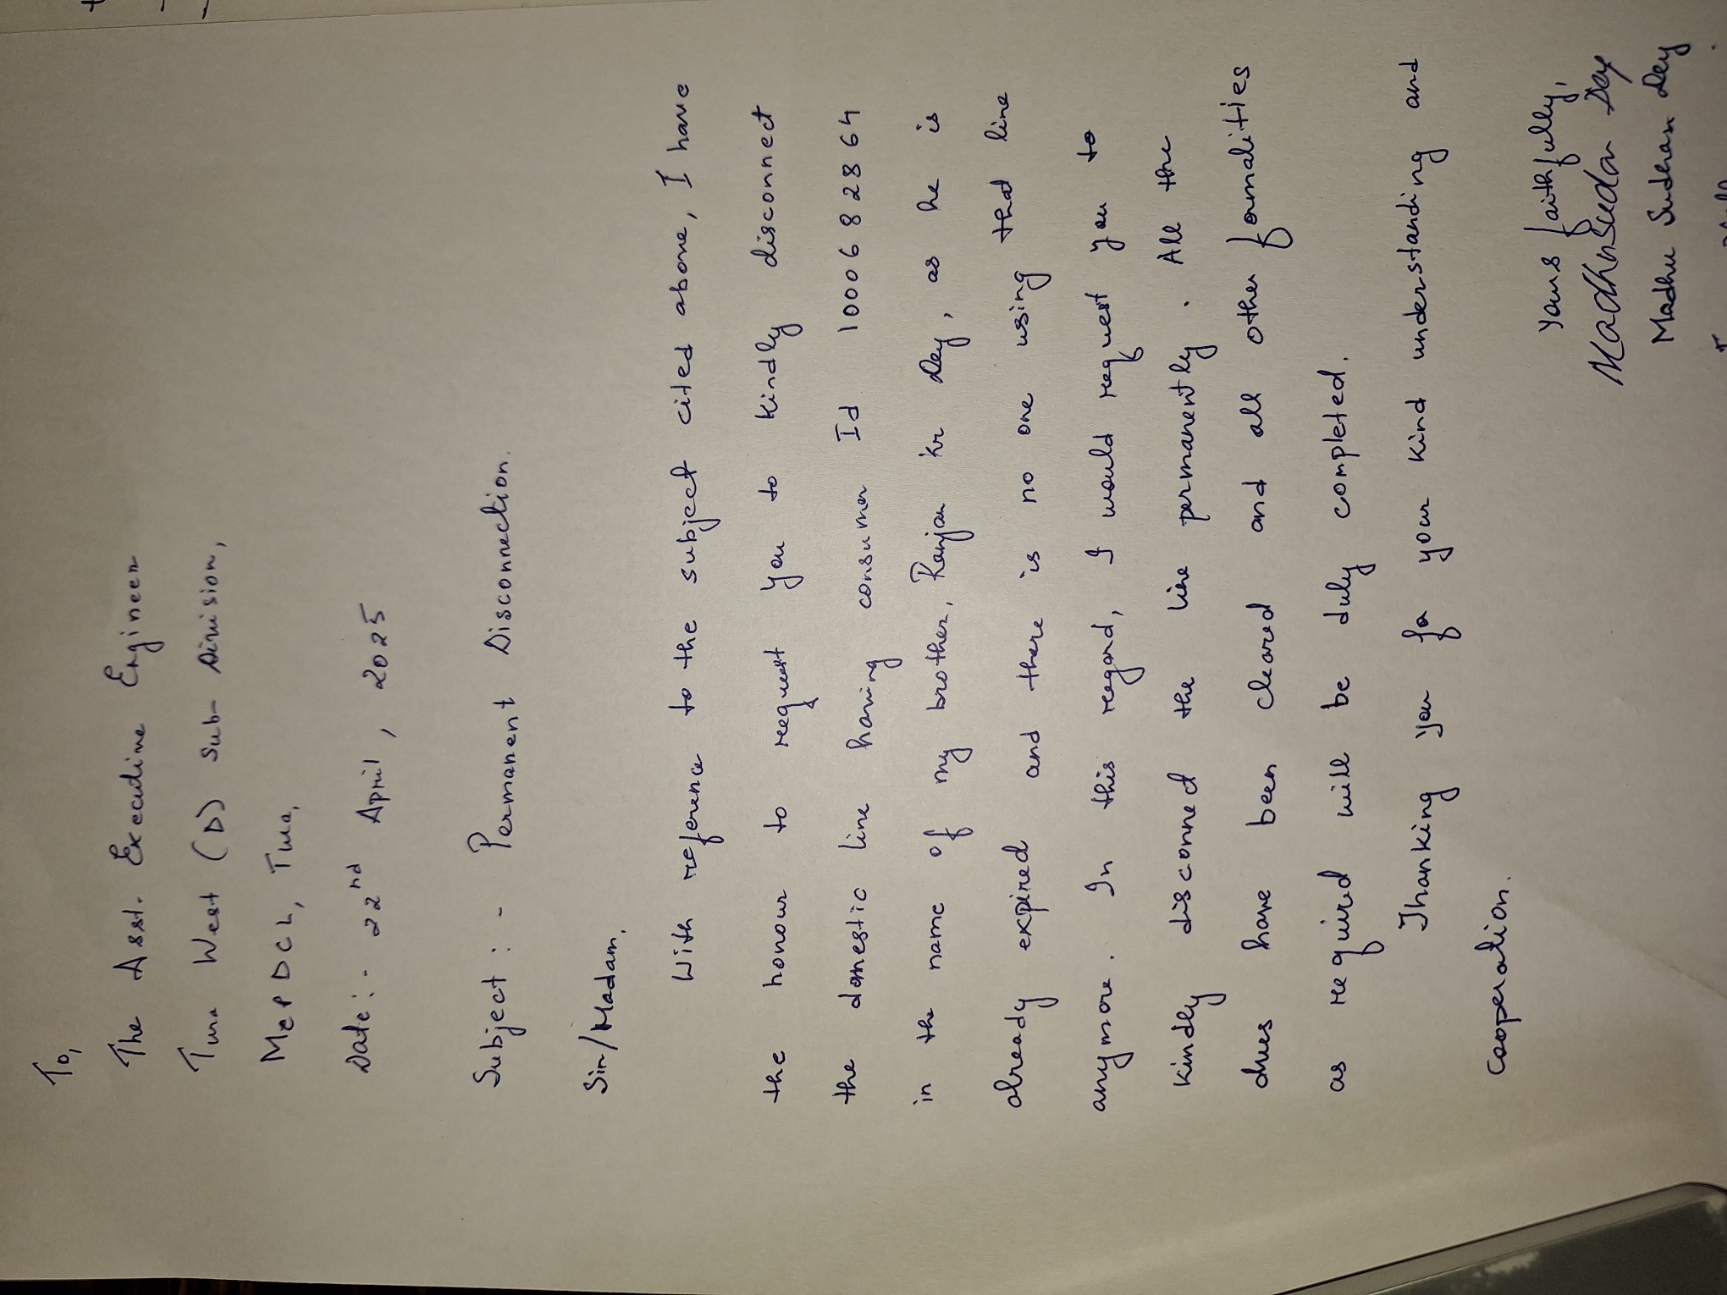 To,
The Asst. Executive Engineer
Tura West (D) Sub-Division,
MePDCL, Tura.
Date:- 22nd April, 2025
Subject:- Permanent Disconnection.
Sir/Madam,
With reference to the subject cited above, I have
the honour to request you to kindly disconnect
the domestic line having consumer Id 10006828 64
in the name of my brother, Ranjan kr Dey, as he is
already expired and there is no one using that line
anymore. In this regard, I would request you to
kindly disconnect the line permanently. All the
dues have been cleared and all other formalities
as required will be duly completed.
Thanking you for your kind understanding and
cooperation.
Yours faithfully,
Madhu Sudan Dey
Madhu Sudhan Dey